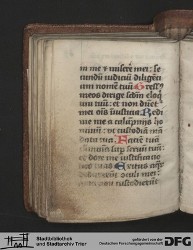 in me et miserere mei: se
cundū iudiciū diligenti
um nomen tuū Gressꝰ
meos dirige scdm eloq
iuū tuū: et non dnet
mei oīs iustitia Redi
me me a calūpniis ho
minū: ut custodiā mā
data tua Faciē tuā
illumina sup servū tuū
et doce me
tuas Exitus aq
deduxerūt oculi mei:
quia non custodierūt
Stadtbibliothek
und Stadtarchiv Trier
gefördert von der
Deutschen Forschungsgemeinschaft
DFG